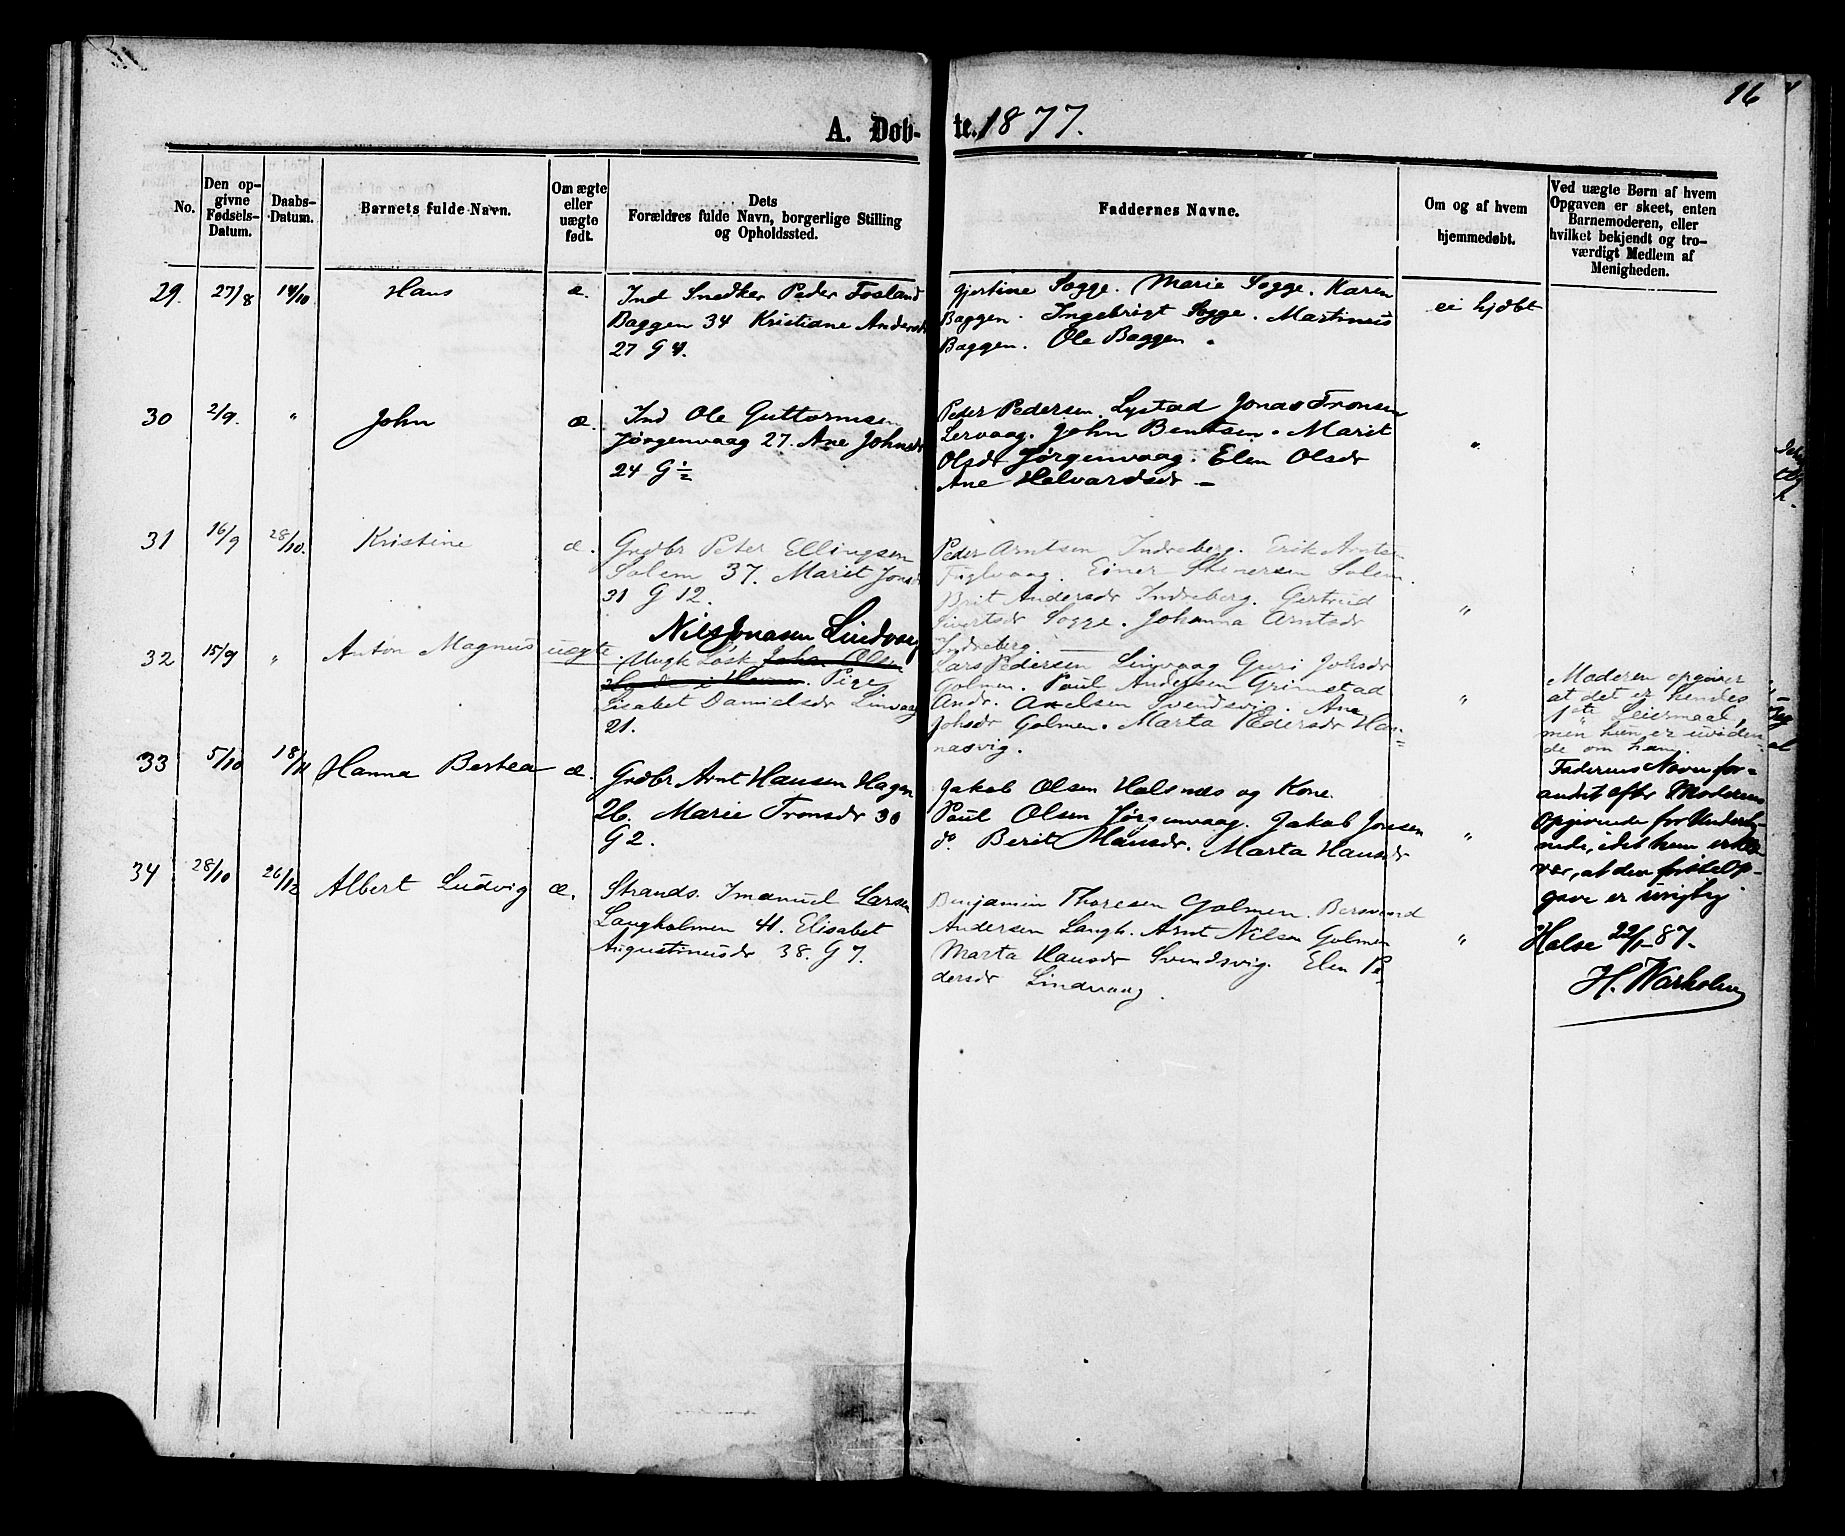 16
A. Døb- te. 1877.
No.
Den op-
givne
Fødsels-
Datum.
Daabs-
Datum.
Barnets fulde Navn.
Om ægte
eller
uægte
født.
Dets
Forældres fulde Navn, borgerlige Stilling
og Opholdssted.
Faddernes Navne.
Om og af hvem
hjemmedøbt.
Ved uægte Børn af hvem
Opgaven er skeet, enten
Barnemoderen, eller
hvilket bekjendt og tro-
værdigt Medlem af
Menigheden.
29. 27/8 14/10 Hans æ.
Ind Snedker Peder Fosland
Baggen 34 Kristiane Andersdr
27 G 4.
Gjertine Sogge. Marie Sogge. Karen
Baggen. Ingebrigt Sogge. Martinus
Baggen. Ole Baggen.
ei hjdbt
30 2/9. " John æ.
Ind Ole Guttormsen
Jørgenvaag 27. Ane Johnsdr
24 G ½
Peder Pedersen Lystad Jonas Tronsen
Lervaag. John Bentsen. Marit
Olsdr Jørgenvaag. Elen Olsdr
Ane Halvardsdr –
"
31 16/9 28/10. Kristine æ.
Grdbr Peter Ellingsen
Solem 37. Marit Jonsdr
31 G 12.
Peder Arntsen Indreberg. Erik Arnts-
Fuglvaag. Einer Steinersen Solem.
Brit Andersdr Indreberg. Gertrud
Sivertsdr Sogge. Johanna Arntsdr
Indreberg.
"
32 15/9 " Anton Magnus uægte.
Nils Jonasen Lindvaag
Ungk Løsk Joh. Olsen
i . Pige
Lisabet Danielsdr Linvaag
21.
Lars Pedersen Linvaag Guri Johsdr
Golmen. Paul Andersen Grimstad
Andr. Axelsen Svendsvig. Ane
Johsdr Golmen. Marta Pedersdr Han-
nasvig.
"
Moderen opgiver
at det er hendes
1ste Leiermaal,
men hun er uviden-
de om ham.
Faderens Navn for-
andret efter Moderens
Opgivende for Underteg-
nede, idet hun erklæ-
rer, at den første Op-
gave er urigtig.
Halse 22/1 87.
H. Warholm
33 5/10 18/11 Hanna Bertea æ.
Grdbr Arnt Hansen Hagen
26. Marie Tronsdr 30
G 2.
Jakob Olsen Halsnæs og Kone.
Paul Olsen Jørgenvaag. Jakob Jonsen
do. Berit Hansdr. Marta Hansdr
"
34 28/10 26/12 Albert Ludvig æ.
Strands. Imanuel Larsen
Langholmen 41. Elisabet
Augustinusdr 38. G 7.
Benjamin Thoresen Golmen. Bersvend
Andersen Langh. Arnt Nilsen Golmen
Marta Hansdr Svendsvig. Elen Pe-
dersdr Lindvaag.
"